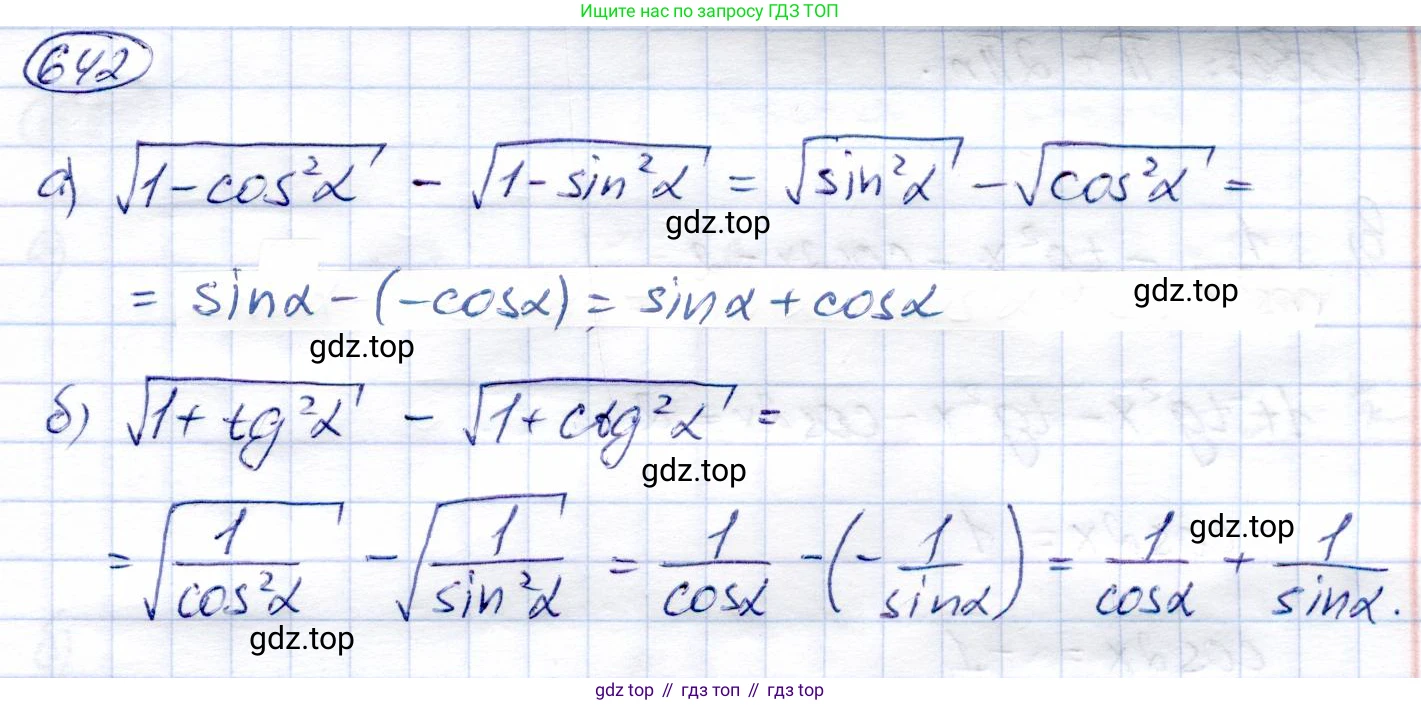 Ищите нас по запросу ГДЗ ТОП
642
а) √(1 - cos²α) - √(1 - sin²α) = √(sin²α) - √(cos²α) =
gdz.top
= sinα - (-cosα) = sinα + cosα
gdz.top
gdz.top
б) √(1 + tg²α) - √(1 + ctg²α) =
gdz.top
= √(1/cos²α) - √(1/sin²α) = 1/cosα - (-1/sinα) = 1/cosα + 1/sinα.
gdz.top
gdz.top
gdz top // гдз топ // gdz top